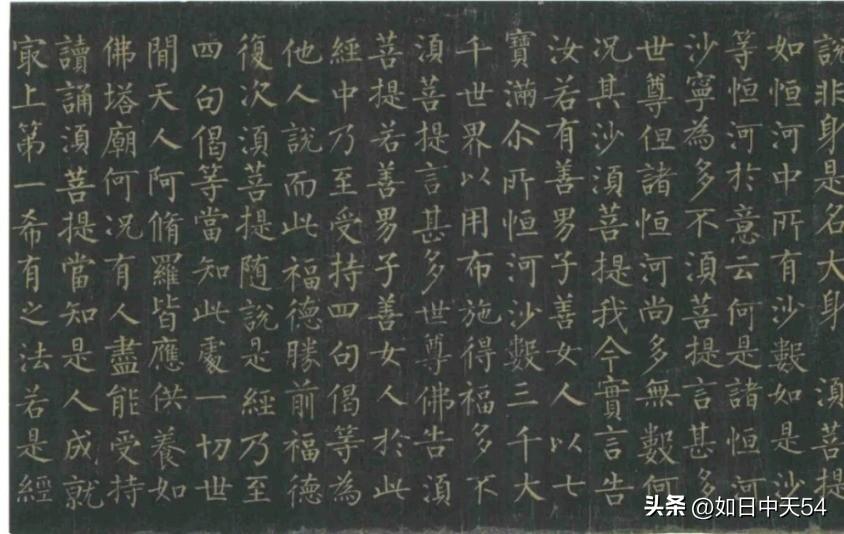 說非身是名大身　湏菩提
如恒河中所有沙數如是沙
等恒河於意云何是諸恒河
沙寧為多不湏菩提言甚多
世尊但諸恒河尚多無數何
況其沙湏菩提我今實言告
汝若有善男子善女人以七
寶滿尒所恒河沙數三千大
千世界以用布施得福多不
湏菩提言甚多世尊佛告湏
菩提若善男子善女人於此
經中乃至受持四句偈等為
他人說而此福德勝前福德
復次湏菩提随說是經乃至
四句偈等當知此處一切世
間天人阿脩羅皆應供養如
佛塔廟何況有人盡能受持
讀誦湏菩提當知是人成就
冣上第一希有之法若是經
头条 @如日中天54